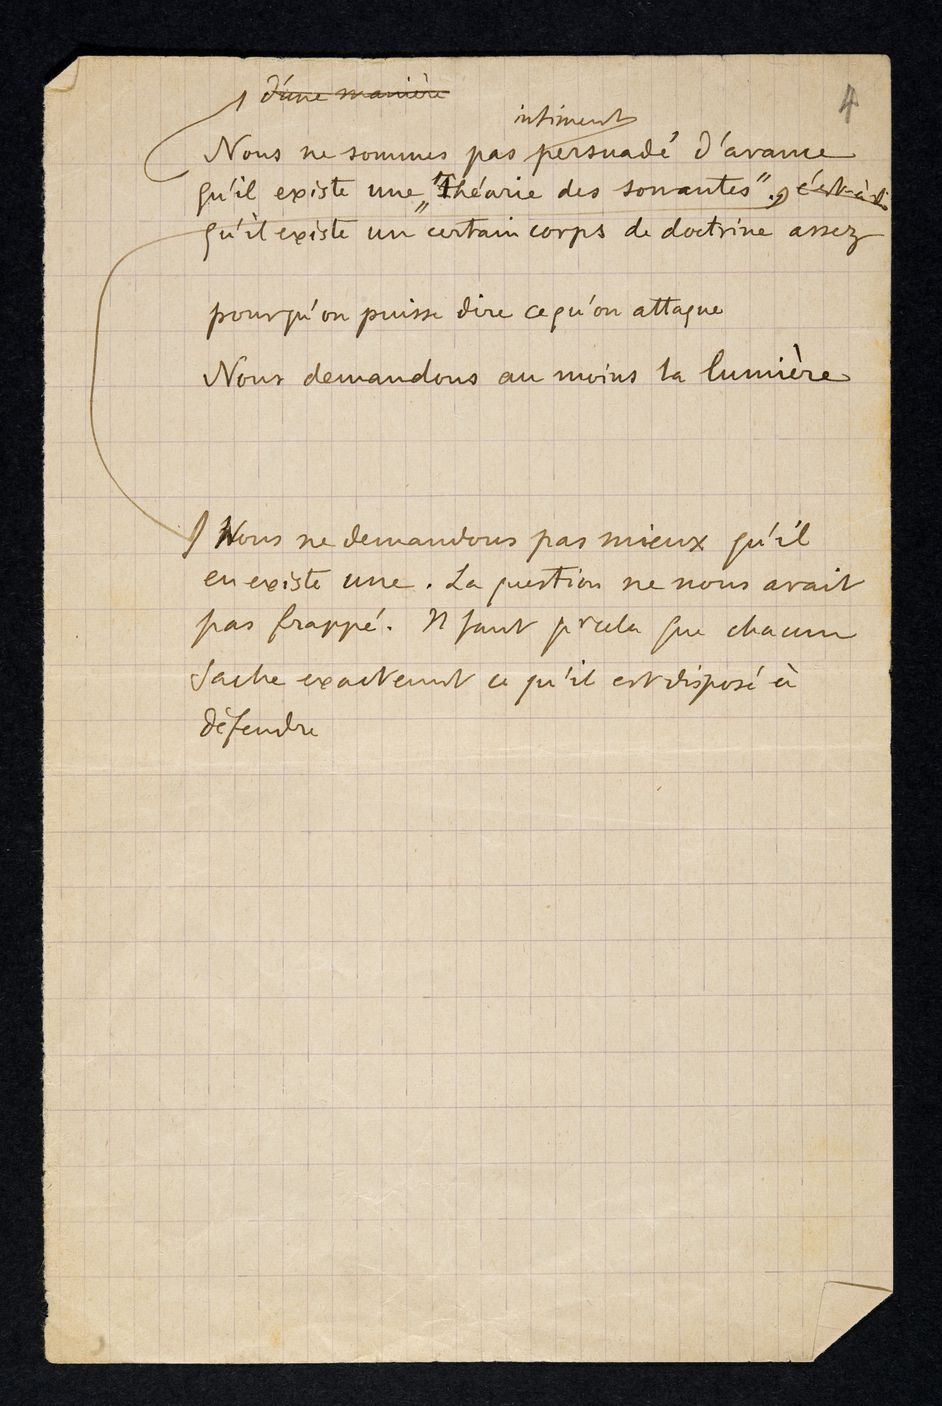 4
d'une manière
intiment
Nous ne sommes pas persuadé d'avance
qu'il existe une "Théorie des sonantes"., c'est-à-di
qu'il existe un "certain corps de doctrine assez
pourqu'on puisse dire ce qu'on attaque
Nous demandons au moins la lumière
Nous ne demandons pas mieux qu'il
en existe une. La question ne nous avait
pas frappé. Il faut pr cela que chacun
sache exactement ce qu'il est disposé à
défendre